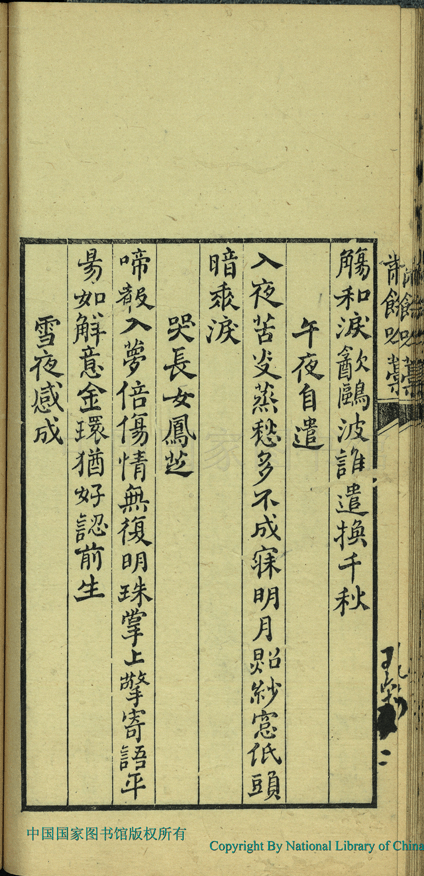 觴和淚㱃鷗波誰遣換千秋
午夜自遣
入夜苦炎蒸愁多不成寐明月照紗窓低頭
暗垂淚
哭長女鳳芝
啼聲入夢倍傷情無復明珠掌上擎寄語平
昜如解意金環猶好認前生
雪夜感成
餘吟藁
二
中国国家图书馆版权所有
Copyright By National Library of China